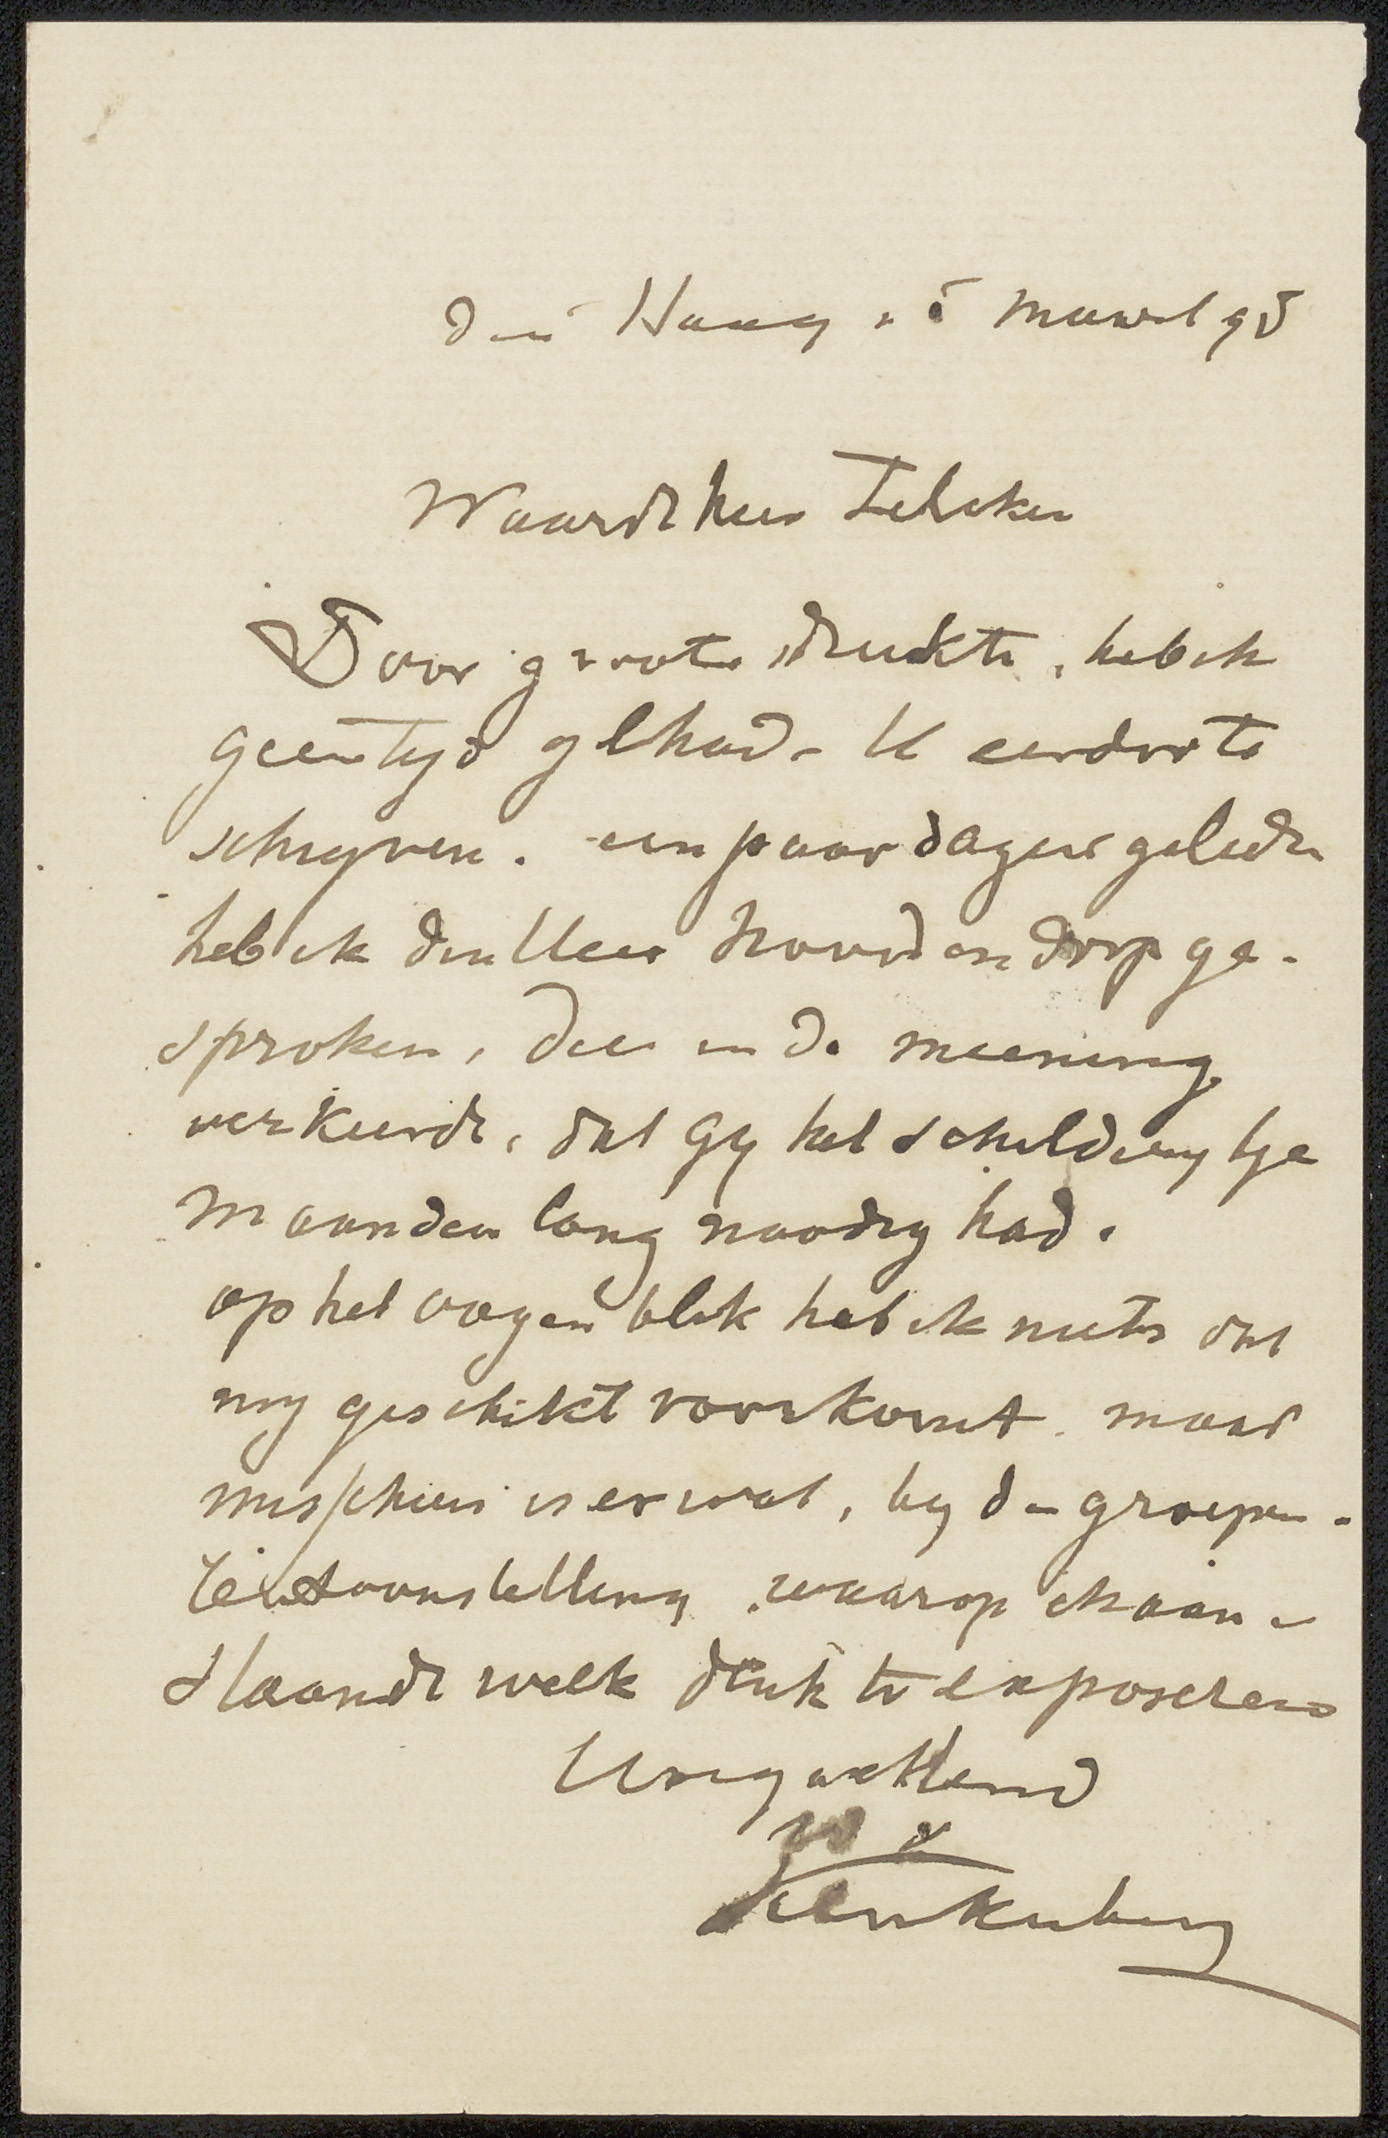 den Haag, 5 Maart 95
Waarde heer Zilcken
Door groote drukte, heb ik
geen tyd gehad U eerder te
schryven. een paar dagen geleden
heb ik den Heer Noordendorp ge-
sproken, die in de meening
verkeerde, dat Gy het schilderytje
maanden lang noodig had.
op het oogenblik heb ik niets dat
my geschikt voorkomt. maar
misschien is er wat, by de groepen-
tentoonstelling waarop ik aan-
staande week denk te exposeeren
Uwe
Tholen